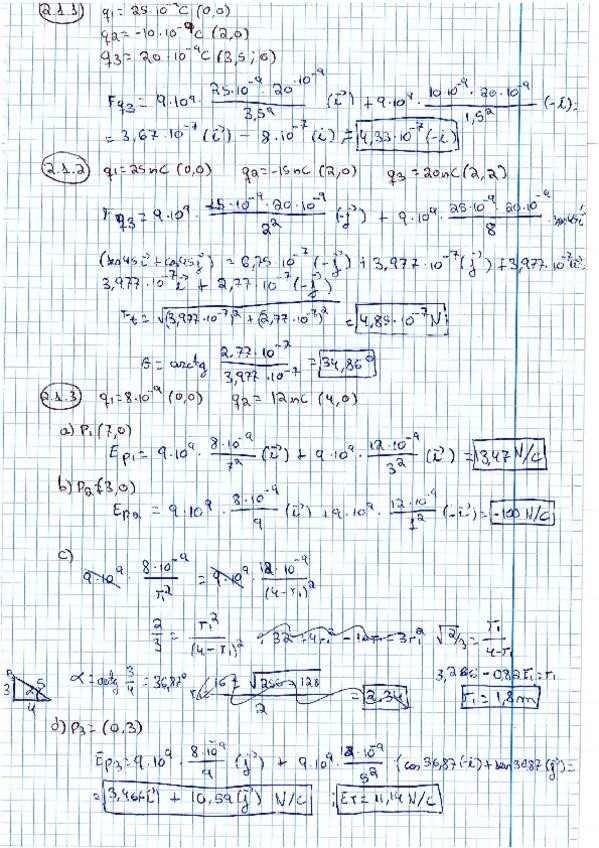 2.1.1) q1 = 25·10⁻⁹C (0,0)
q2 = -10·10⁻⁹C (2,0)
q3 = 20·10⁻⁹C (3,5;0)
Fq3 = 9·10⁹· 25·10⁻⁹·20·10⁻⁹ / 3,5² (i⃗) + 9·10⁹· 10·10⁻⁹·20·10⁻⁹ / 1,5² (-i) =
= 3,67·10⁻⁷(i⃗) - 8·10⁻⁷(i) = 4,33·10⁻⁷(-i)
2.1.2 q1 = 25nC (0,0) q2 = -15nC (2,0) q3 = 20nC (2,2)
Fq3 = 9·10⁹ · 15·10⁻⁹·20·10⁻⁹ / 2² (-j⃗) + 9·10⁹· 25·10⁻⁹·20·10⁻⁹ / 8
(sen45i⃗ + cos45j⃗) = 6,75·10⁻⁷(-j⃗) + 3,977·10⁻⁷(j⃗) + 3,977·10⁻⁷i⃗ =
3,977·10⁻⁷i⃗ + 2,77·10⁻⁷(-j⃗)
Ft = √(3,977·10⁻⁷)² + (2,77·10⁻⁷)² = 4,85·10⁻⁷N
θ = arctg 2,77·10⁻⁷ / 3,977·10⁻⁷ = 34,86°
2.1.3 q1 = 8·10⁻⁹ (0,0) q2 = 12nC (4,0)
a) P1 (7,0)
Ep1 = 9·10⁹ · 8·10⁻⁹ / 7² (i⃗) + 9·10⁹· 12·10⁻⁹ / 3² (i⃗) = 13,47 N/C
b) P2 (3,0)
Ep2 = 9·10⁹ · 8·10⁻⁹ / 9 (i⃗) + 9·10⁹· 12·10⁻⁹ / 1² (-i⃗) = -100 N/C
c)
9·10⁹ · 8·10⁻⁹ / r1² = 9·10⁹ · 12·10⁻⁹ / (4-r1)²
2/3 = r1² / (4-r1)² √2/3 = r1 / 4-r1
3,266 - 0,82r1 = r1
r1 = 1,8m
3 5 α 4
α = arctg 3/4 = 36,87° 2 = 2,34
d) P3 = (0,3)
Ep3 = 9·10⁹ · 8·10⁻⁹ / 9 (j⃗) + 9·10⁹· 12·10⁻⁹ / 5² (cos36,87(-i) + sen36,87(j⃗)) =
= 3,46(-i⃗) + 10,59(j⃗) N/C ; ET = 11,14 N/C